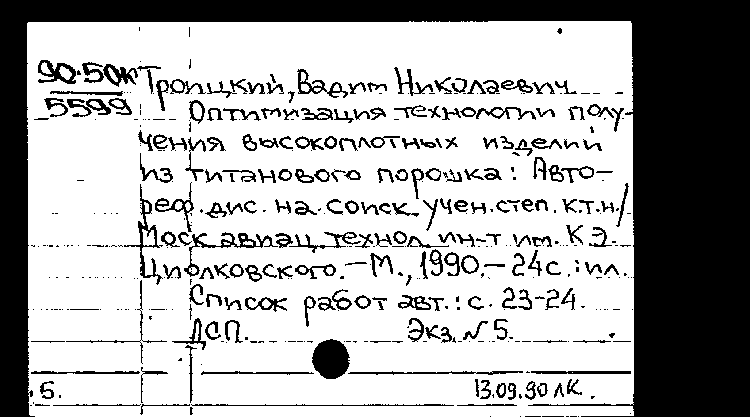 90-50к
5599
Троицкий, Вадим Николаевич
Оптимизация технологии полу-
чения высокоплотных изделий
из титанового порошка : Авто-
реф. дис. на соиск. учен. степ. к.т.н./
Моск. авиац. технол. ин-т им. К.Э.
Циолковского. – М., 1990. – 24с. : ил.
Список работ авт. : с. 23-24.
ДСП. Экз. № 5.
Б. 13.09.90 ЛК.